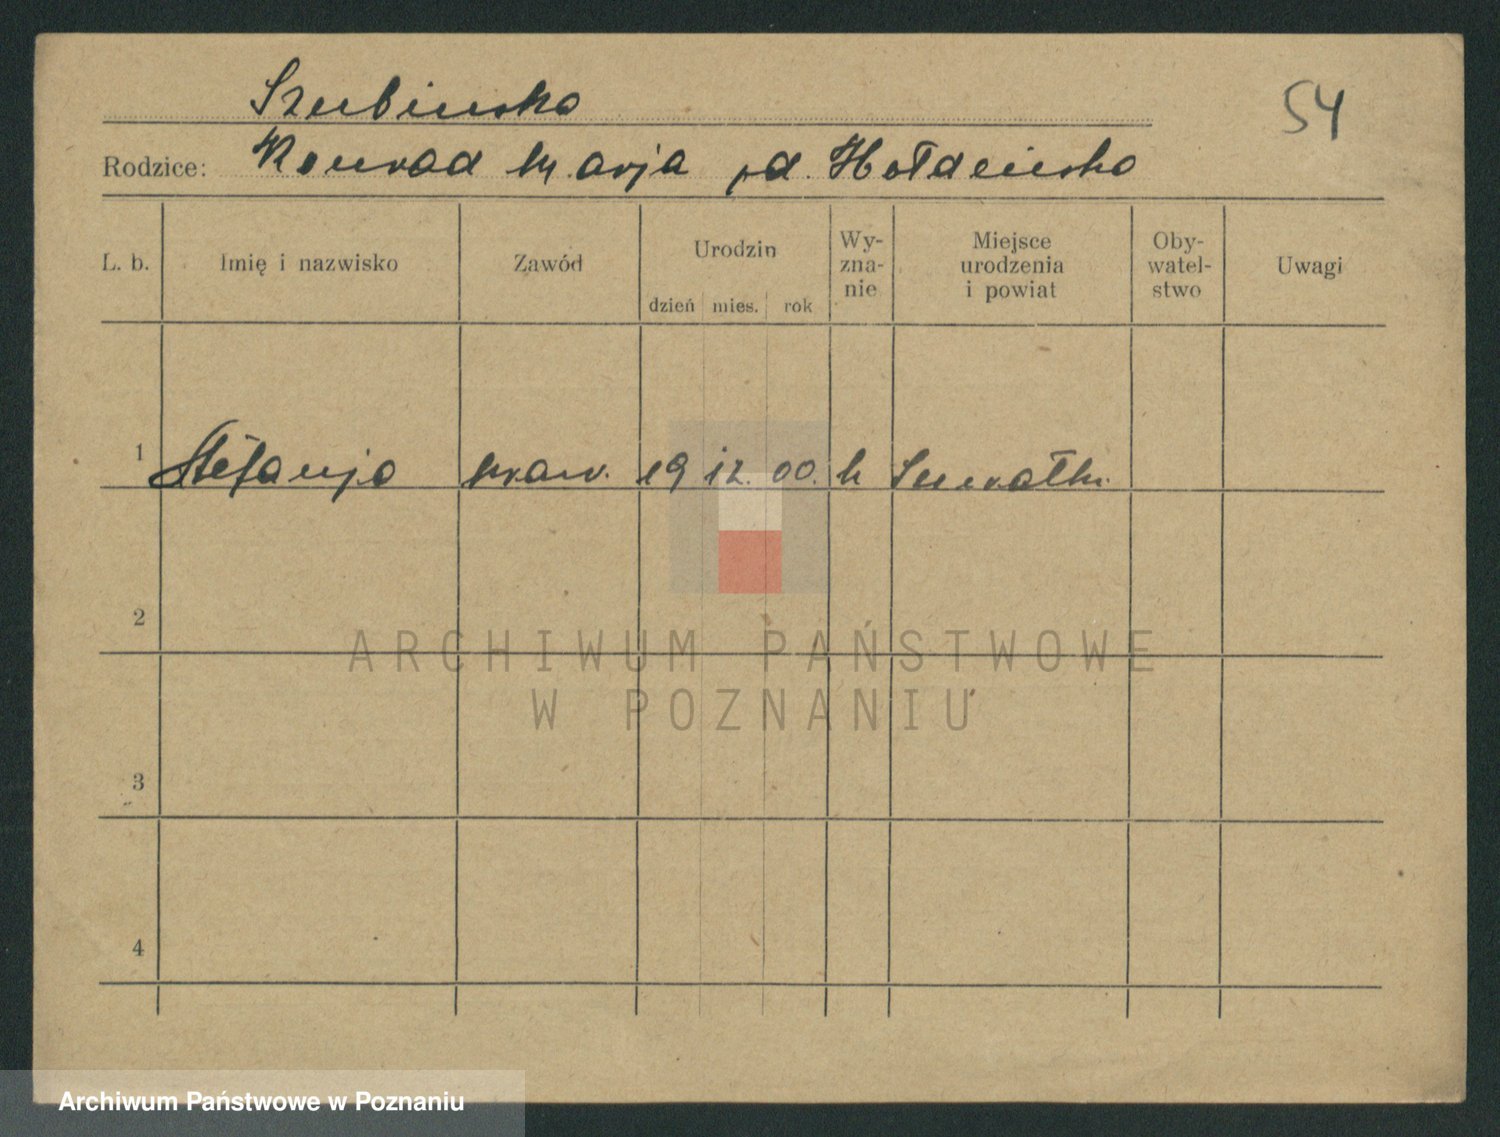 Szubinska
54
Rodzice: Konrad Marja
L. b. Imię i nazwisko Zawód Urodzin dzień mies. rok Wy-zna-nie Miejsce urodzenia i powiat Oby-watel-stwo Uwagi
1 Stefanja kraw. 19 12. 00. k Suwałki
2
ARCHIWUM PAŃSTWOWE
W POZNANIU
3
4
Archiwum Państwowe w Poznaniu